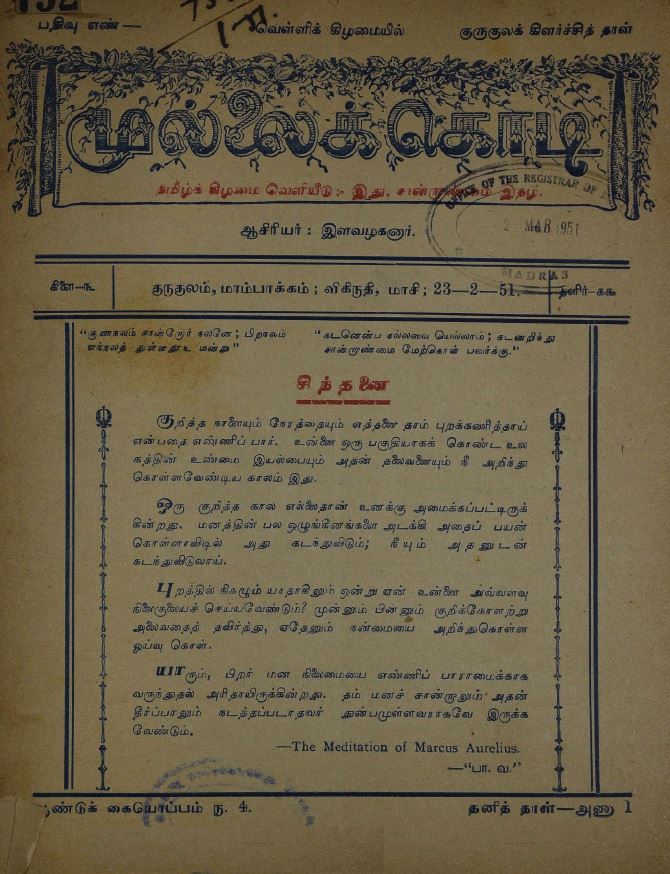 பதிவு எண் —
வெள்ளிக் கிழமையில்
குருகுலக் கிளர்ச்சித் தாள்
முல்லைக்கொடி
தமிழ்க் கிழமை வெளியீடு :- இது, சான்றாண்மை இதழ்.
OFFICE OF THE REGISTRAR OF
2 MAR 1951
MADRAS
ஆசிரியர் : இளவழகனார்.
கிளை—௩
குருகுலம், மாம்பாக்கம் ; விகிருதி, மாசி ; 23—2—51.
தளிர்—௧௧
"குணநலம் சான்றோர் நலனே ; பிறநலம்
எந்நலத் துள்ளதூஉ மன்று"
"கடனென்ப நல்லவை யெல்லாம் ; கடனறிந்து
சான்றாண்மை மேற்கொள் பவர்க்கு."
சிந்தனை
குறித்த நாளையும் நேரத்தையும் எத்தனை தரம் புறக்கணித்தாய்
என்பதை எண்ணிப் பார். உன்னை ஒரு பகுதியாகக் கொண்ட உல
கத்தின் உண்மை இயல்பையும் அதன் தலைவனையும் நீ அறிந்து
கொள்ளவேண்டிய காலம் இது.
ஒரு குறித்த கால எல்லைதான் உனக்கு அமைக்கப்பட்டிருக்
கின்றது. மனத்தின் பல ஒழுங்கீனங்களை அடக்கி அதைப் பயன்
கொள்ளாவிடில் அது கடந்துவிடும் ; நீயும் அதனுடன்
கடந்துவிடுவாய்.
புறத்தில் நிகழும் யாதாகிலும் ஒன்று ஏன் உன்னை அவ்வளவு
நிலைகுலையச் செய்யவேண்டும்? முன்னும் பின்னும் குறிக்கோளற்று
அலைவதைத் தவிர்த்து, ஏதேனும் நன்மையை அறிந்துகொள்ள
ஓய்வு கொள்.
யாரும், பிறர் மன நிலைமையை எண்ணிப் பாராமைக்காக
வருந்துதல் அரிதாயிருக்கின்றது. தம் மனச் சான்றாலும் அதன்
தீர்ப்பாலும் நடத்தப்படாதவர் துன்பமுள்ளவராகவே இருக்க
வேண்டும்.
—The Meditation of Marcus Aurelius.
—"பா. வ."
ஆண்டுக் கையொப்பம் ரூ. 4.
தனித் தாள்—அணா 1